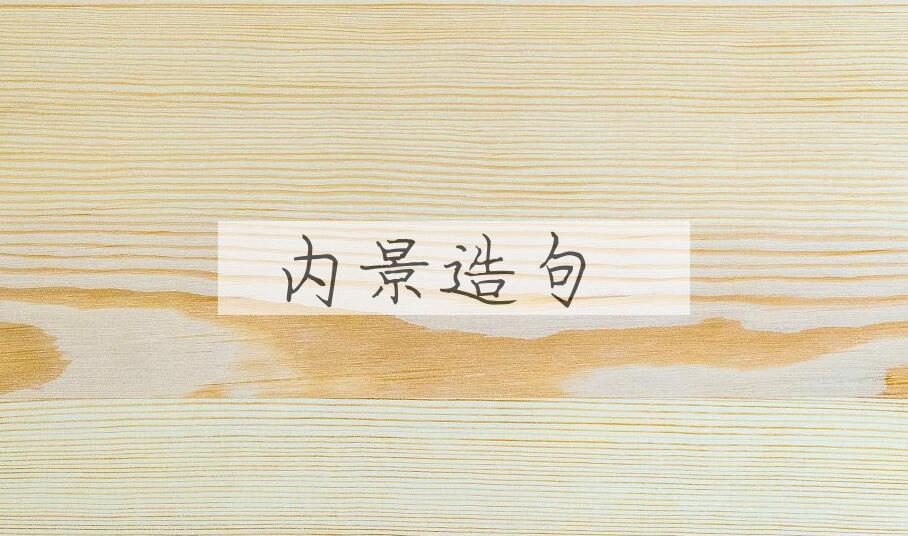 内景造句